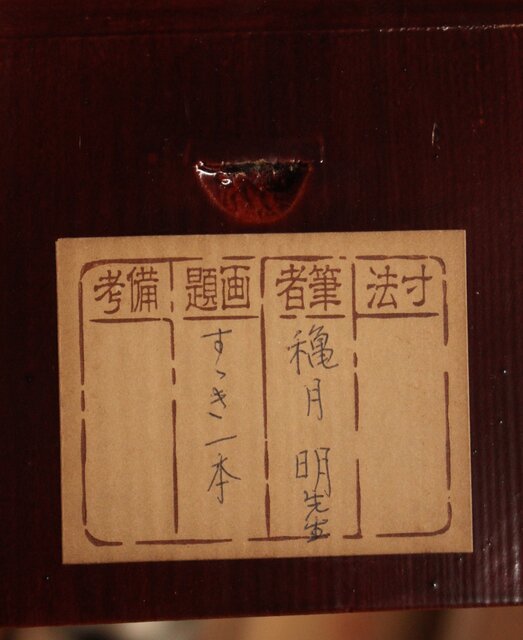 寸法
筆者
穐月 明先生
画題
すゝき一本
備考